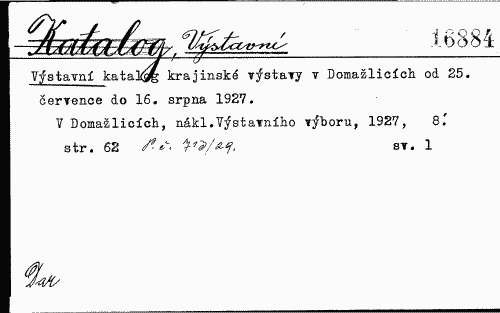 Katalog, Výstavní 16884
Výstavní katalog krajinské výstavy v Domažlicích od 25.
července do 16. srpna 1927.
V Domažlicích, nákl.Výstavního výboru, 1927, 8.
str. 62 sv. 1
Dar